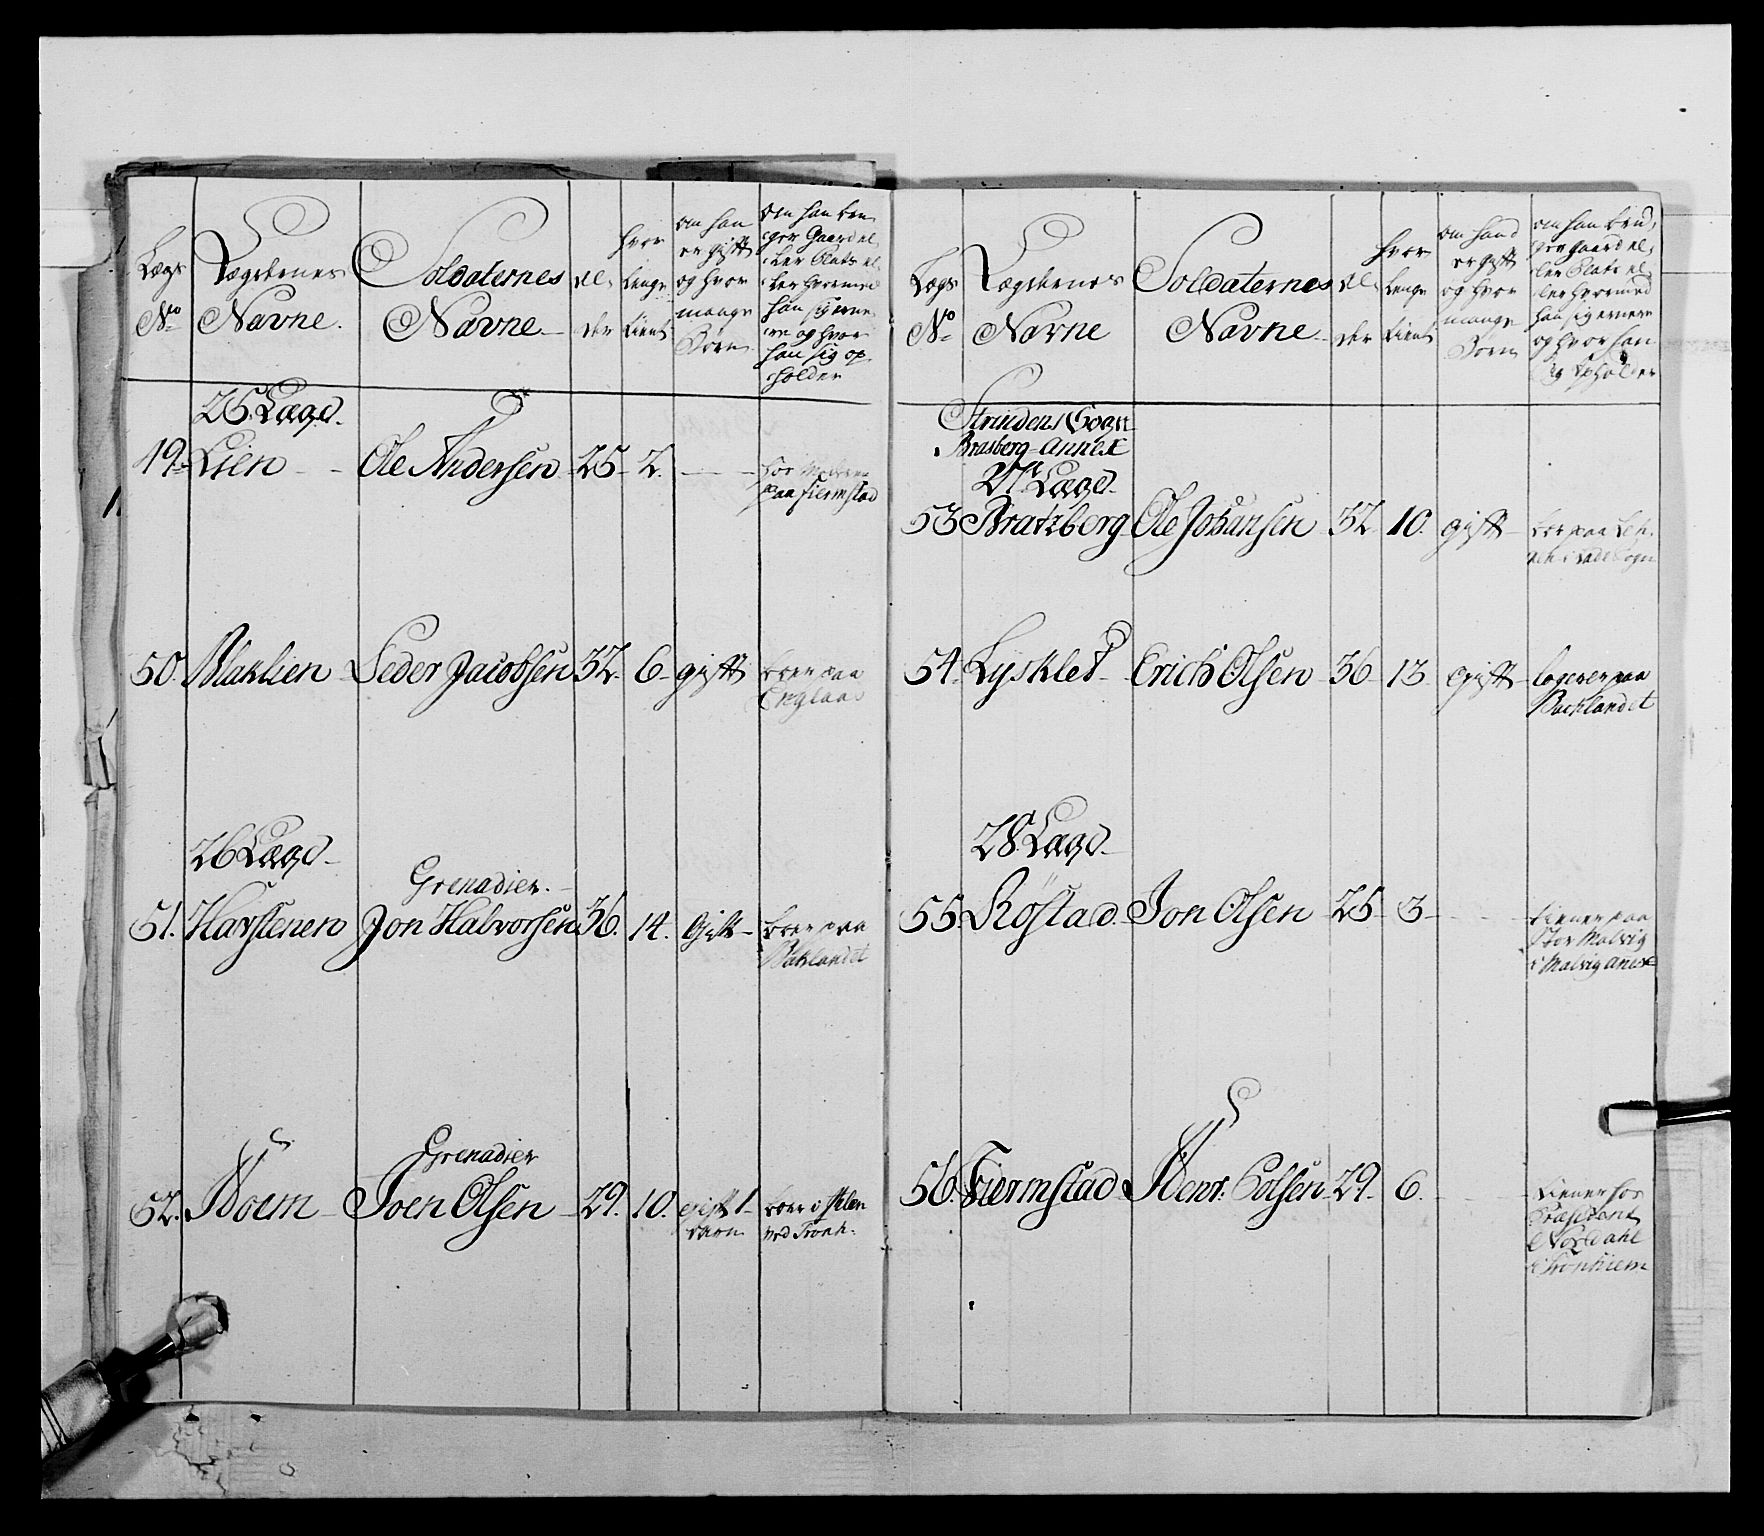 Lægs No
Lægdernes Navne.
Soldaternes Navne.
Al- der
hvor lenge tient
om han er gift og hvor mange Børn
Om han bru- ger Gaard el- ler Plats el- ler hvormed han sig erne- re og hvor han sig op- holder
25 Lægd.
49. Lien - Ole Andersen 25 2. - hos
paa Fiermstad
50. Blaklien Peder Jacobsen 32. 6 gift boer paa
26 Lægd
Grenadier.
51. Havstenen Jon Halvorsen 36. 14. Gift boer paa
Baklandet
Grenadier
52. Moem Joen Olsen 29. 10. gift 1 boer i Ihlen
barn ved Tronh:
Lægs No
Lægdernes Navne
Soldaternes Navne
Al- der
hvor lenge tient
om hand er gift og hvor mange Børn
om han bru- ger Gaard el- ler Plats el- ler hvormed han sig ernere og hvor han sig opholder
Strindens Sogn
Brasberg Annex
27. Lægd.
53 Bratzberg Ole Johansen 32 10. gift boer paa
i Sogn
54. Lysklet Erich Olsen 36 13 Gift logerer paa
Backlandet
28 Lægd
55. Røstad Jon Olsen 25 3 tiener paa
Stor Malvig
i Malvig Anex
56. Fiermstad Henr: Colsen 29. 6. tiener hos
Præsident
Nordahl
i Tronhiem